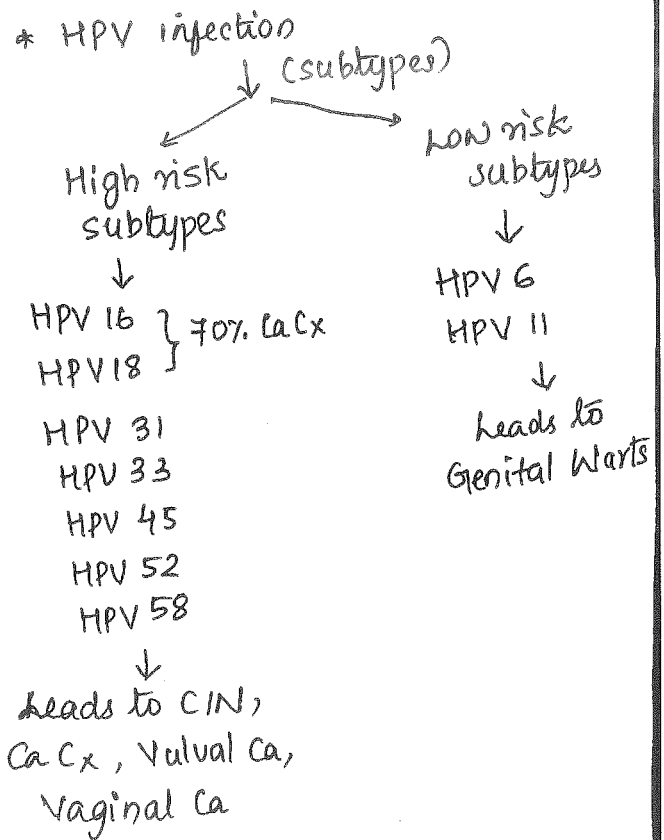 * HPV infection
↓ (subtypes)
High risk
subtypes
↓
HPV 16 } 70% Ca Cx
HPV 18
HPV 31
HPV 33
HPV 45
HPV 52
HPV 58
↓
Leads to CIN,
Ca Cx, Vulval Ca,
Vaginal Ca
Low risk
subtypes
↓
HPV 6
HPV 11
↓
Leads to
Genital Warts